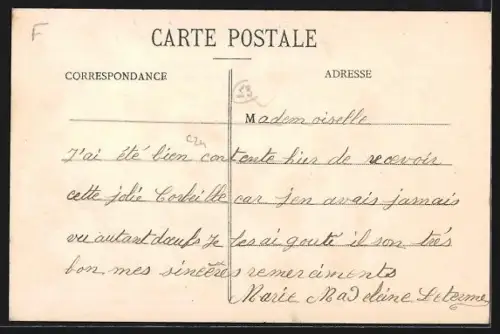 F
CARTE POSTALE
CORRESPONDANCE
ADRESSE
53
Mademoiselle
J'ai été bien contente hier de recevoir
cette jolie Corbeille car jen avais jamais
vu autant dœufs Je les ai gouté il son trés
bon mes sincères remerciments
Marie Madeleine Determe